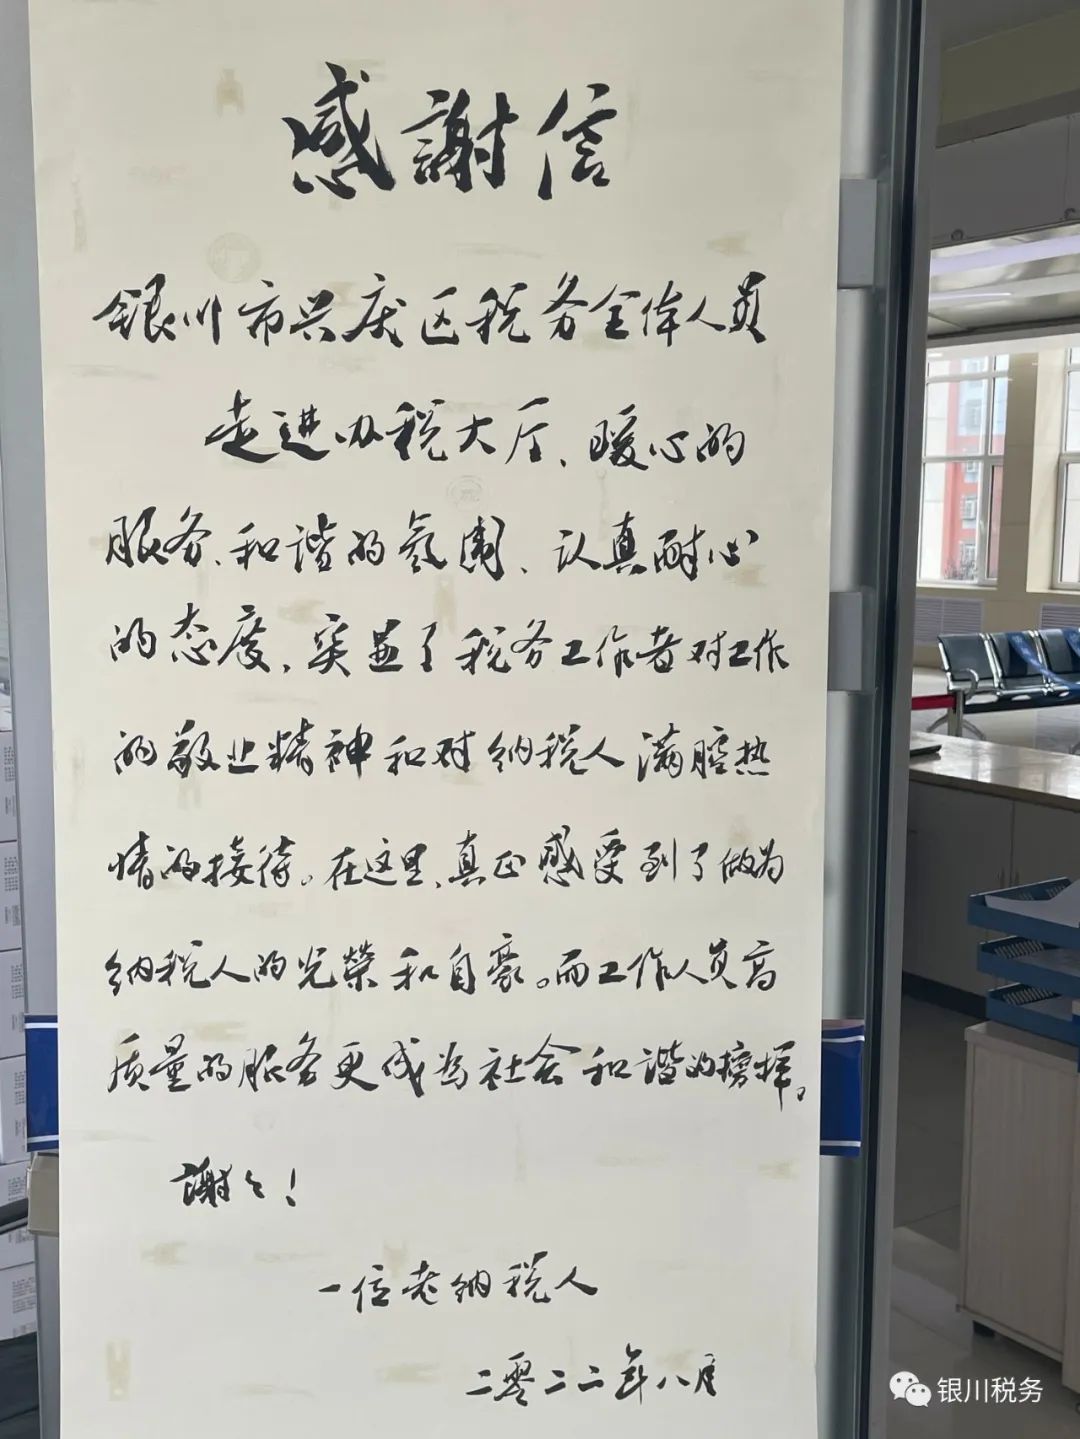 感謝信
银川市兴庆区税务全体人员
走进办税大厅、暖心的
服务、和谐的氛围、认真耐心
的态度，突显了税务工作者对工作
的敬业精神和对纳税人满腔热
情的接待。在这里、真正感受到了做为
纳税人的光荣和自豪。而工作人员高
质量的服务更成为社会和谐的榜样。
謝々！
一位老纳税人
二零二二年八月
银川税务